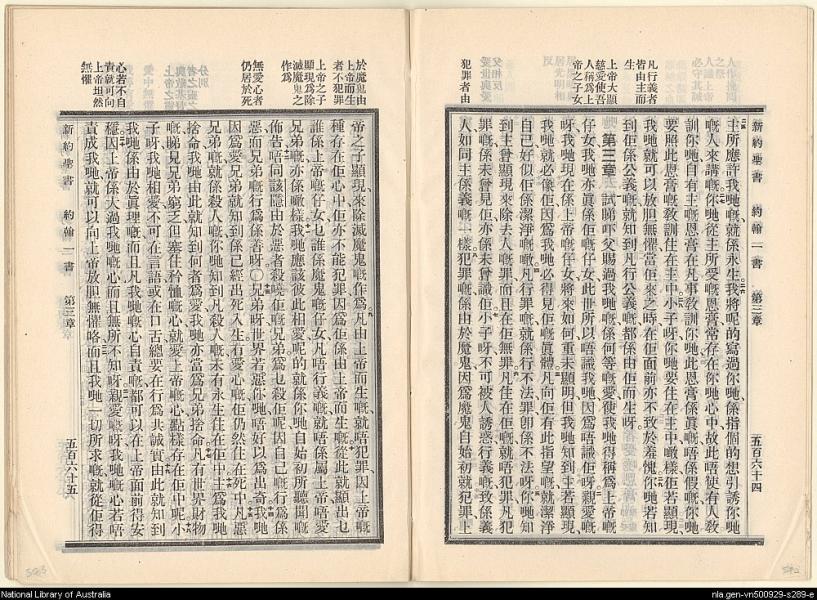 新約聖書 約翰一書 第三章 五百六十四
凡行義者
皆由主而
生
上帝大顯
慈愛使吾
人稱爲上
帝之子女
犯罪者由
主所應許我哋嘅就係永生我將呢的寫過你哋係指個的想引誘你哋
嘅人來講嘅你哋從主所受嘅恩膏常存在你哋心中故此唔使有人教
訓你哋自有主嘅恩膏在凡事教訓你哋此恩膏係眞嘅唔係假嘅你哋
要照此恩膏嘅教訓住在主中小子呀你哋要住在主中噉樣佢若顯現
我哋就可以放胆無懼當佢來之時在佢面前亦不致於羞愧你哋若知
到佢係公義嘅就知到凡行公義嘅都係由佢而生呀
第三章 試睇吓父賜過我哋嘅係何等嘅愛使我哋得稱爲上帝嘅
仔女我哋亦眞係佢嘅仔女此世所以唔識我哋因爲唔識佢呀親愛嘅
呀我哋現在係上帝嘅仔女將來如何重未顯明但我哋知到主若顯現
我哋就必像佢因爲我哋必得見佢嘅眞體凡向佢有此指望嘅就潔淨
自己好似佢係潔淨嘅噉凡行罪嘅就係行不法罪即係不法呀你哋知
到主曾顯現來除去人嘅罪而且在佢無罪凡住在佢嘅就唔犯罪凡犯
罪嘅係未曾見佢亦係未曾識佢小子呀不可被人誘惑行義嘅致係義
人如同主係義嘅一樣犯罪嘅係由於魔鬼因爲魔鬼自始初就犯罪上
於魔鬼由
上帝而生
者不犯罪
上帝之子
顯現爲除
滅魔鬼之
作爲
無愛心者
仍居於死
心若不自
責就可向
上帝坦然
無懼
帝之子顯現來除滅魔鬼嘅作爲凡由上帝而生嘅就唔犯罪因上帝嘅
種存在佢心中佢亦不能犯罪因爲佢係由上帝而生嘅從此就顯出乜
誰係上帝嘅仔女乜誰係魔鬼嘅仔女凡唔行義嘅就唔係屬上帝唔愛
兄弟嘅亦係噉樣我哋應該彼此相愛呢的就係你哋自始初所聽聞嘅
佈告唔同該隱由於惡者殺曉佢嘅兄弟爲乜殺佢呢因自己嘅行爲係
惡而兄弟嘅行爲係善呀○兄弟呀世界若惡你哋唔好以爲出奇我哋
因爲愛兄弟就知到係已經出死入生冇愛心嘅佢仍然住在死中凡惡
兄弟嘅就係殺人嘅你哋知到凡殺人嘅未有永生住在佢中主爲我哋
捨命我哋由此就知到何者爲愛我哋亦當爲兄弟捨命凡有世界財物
嘅睇見兄弟窮乏但塞住矜恤嘅心就愛上帝嘅心點樣存在佢中呢小
子呀我哋相愛不可在言語或在口舌總要在行爲共誠實由此就知到
我哋係由於眞理嘅而且凡我哋嘅心自責嘅都可以在上帝面前得安
穩因上帝係大過我哋嘅心而且無所不知呀親愛嘅呀我哋嘅心若唔
責成我哋就可以向上帝放胆無懼咯而且我哋一切所求嘅就從佢得
新約聖書 約翰一書 第三章 五百六十五
National Library of Australia
nla.gen-vn500929-s289-e